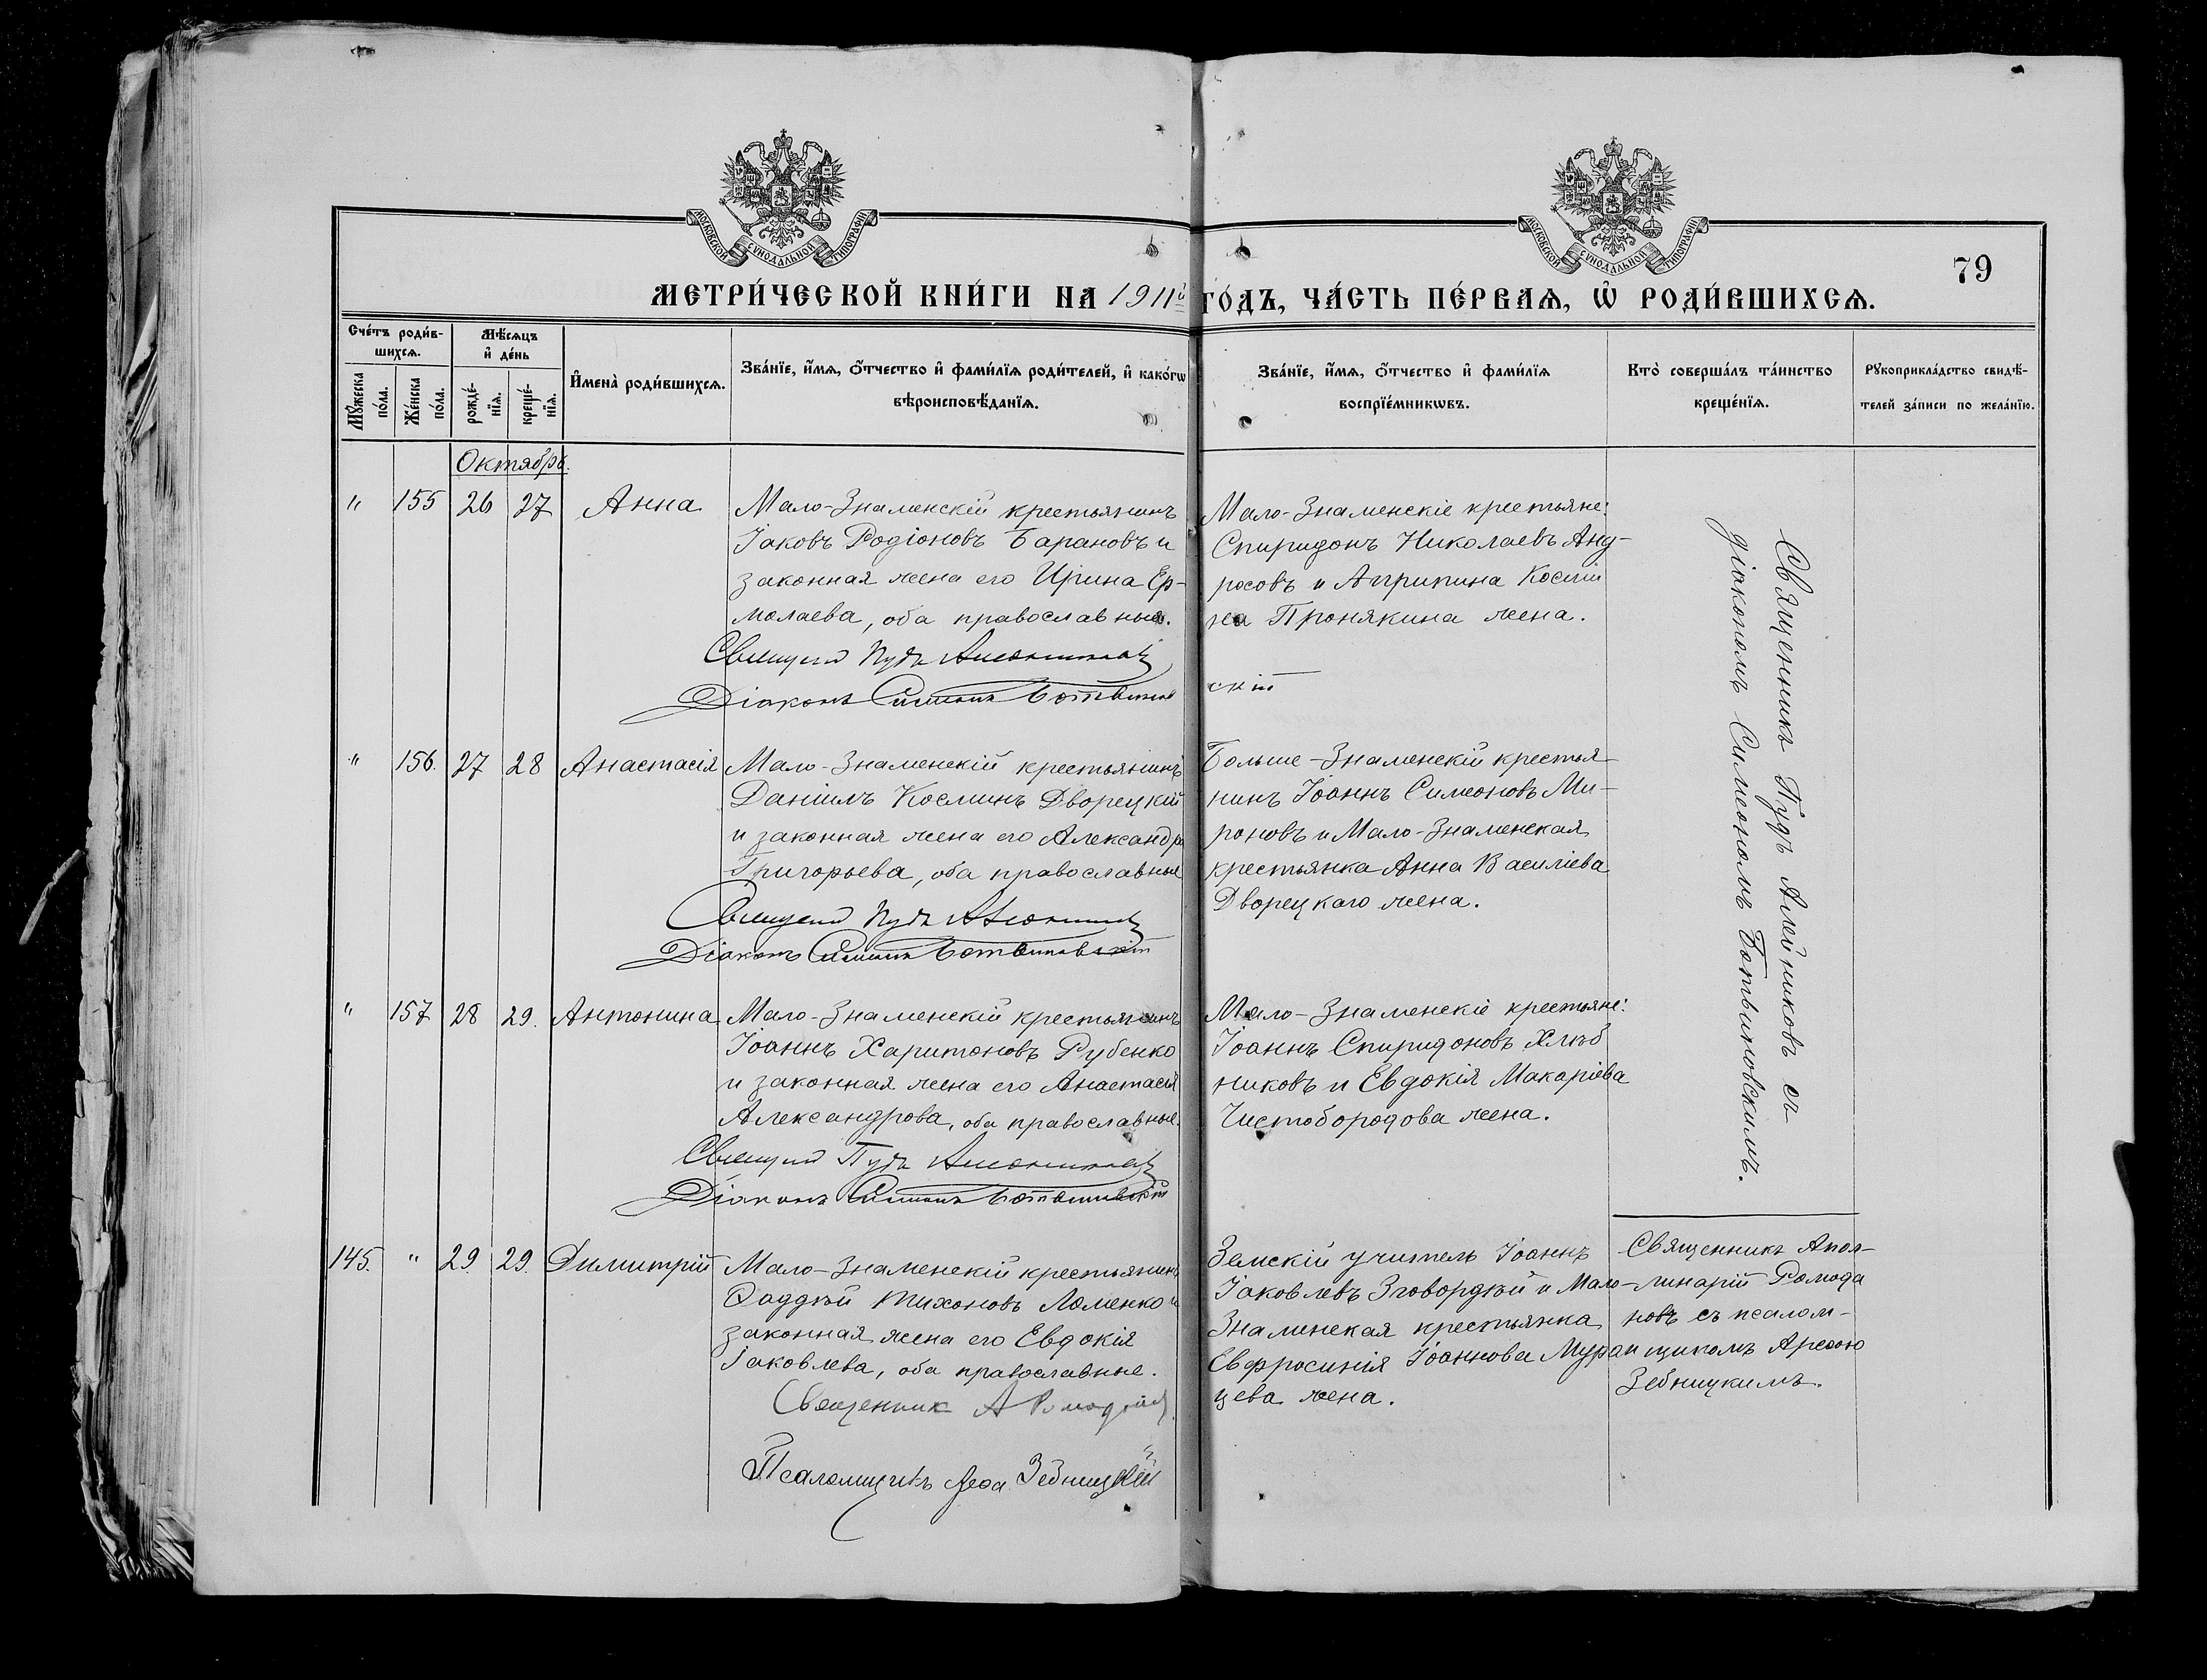 МОСКОВСКОЙ СѴНОДАЛЬНОЙ ТИПОГРАФІИ
МОСКОВСКОЙ СѴНОДАЛЬНОЙ ТИПОГРАФІИ
79
МЕТРИ́ЧЕСКОЙ КНИ́ГИ НА 1911й ГО́ДЪ, ЧА́СТЬ ПЕ́РВАѦ, Ѡ҆ РОДИ́ВШИХСѦ.
Сче́тъ роди́в-
шихсѧ.
Мѣ́сѧцъ
и҆ де́нь
Мꙋ́жеска
по́ла.
Же́нска
по́ла.
рожде́-
нїѧ.
креще́-
нїѧ.
И҆мена̀ роди́вшихсѧ.
Зва́нїе, и҆́мѧ, ѻ҆́тчество и҆ фами́лїѧ роди́телей, и҆ како́гѡ
вѣроисповѣ́данїѧ.
Зва́нїе, и҆́мѧ, ѻ҆́тчество и҆ фами́лїѧ
воспрїе́мникѡвъ.
Кто̀ соверша́лъ та́инство
креще́нїѧ.
Рꙋкоприкла́дство свидѣ́-
телей за́писи по жела́нїю.
Октябрь.
" 155 26 27 Анна
Мало-Знаменскій крестьянинъ
Іаковъ Родіоновъ Барановъ и
законная жена его Ирина Ер-
молаева, оба православные.
Священникъ Пудъ Алейниковъ
Діаконъ Симеонъ Ботвиновскій
Мало-Знаменскіе крестьяне:
Спиридонъ Николаевъ Анд-
росовъ и Агрипина Косми
на Пронякина жена.
" 156. 27 28 Анастасія
Мало-Знаменскій крестьянинъ
Даніилъ Косминъ Дворецкій
и законная жена его Александра
Григорьева, оба православные
Священникъ Пудъ Алейниковъ
Діаконъ Симеонъ Ботвиновскій
Больше-Знаменскій крестья-
нинъ Іоаннъ Симеоновъ Ми-
роновъ и Мало-Знаменская
крестьянка Анна Василіева
Дворецкаго жена.
" 157 28 29. Антонина
Мало-Знаменскій крестьянинъ
Іоаннъ Харитоновъ Рубенко
и законная жена его Анастасія
Александрова, оба православные.
Священникъ Пудъ Алейниковъ
Діаконъ Симеонъ Ботвиновскій
Мало-Знаменскіе крестьяне:
Іоаннъ Спиридоновъ Хлѣб
никовъ и Евдокія Макаріева
Чистобородова жена.
Священникъ Пудъ Алейниковъ съ
діакономъ Симеономъ Ботвиновскимъ.
145. " 29. 29. Димитрій
Мало-Знаменскій крестьянинъ
Ѳаддѣй Тихоновъ Ломенко и
законная жена его Евдокія
Іаковлева, оба православные.
Священникъ А Ромодановъ
Псаломщикъ Зебницкій
Земскій учитель Іоаннъ
Іаковлевъ и Мало-
Знаменская крестьянка
Евфросинія Іоаннова Муран
цева жена.
Священникъ Апол-
линарій Ромода
новъ съ псалом-
щикомъ
Зебницкимъ.